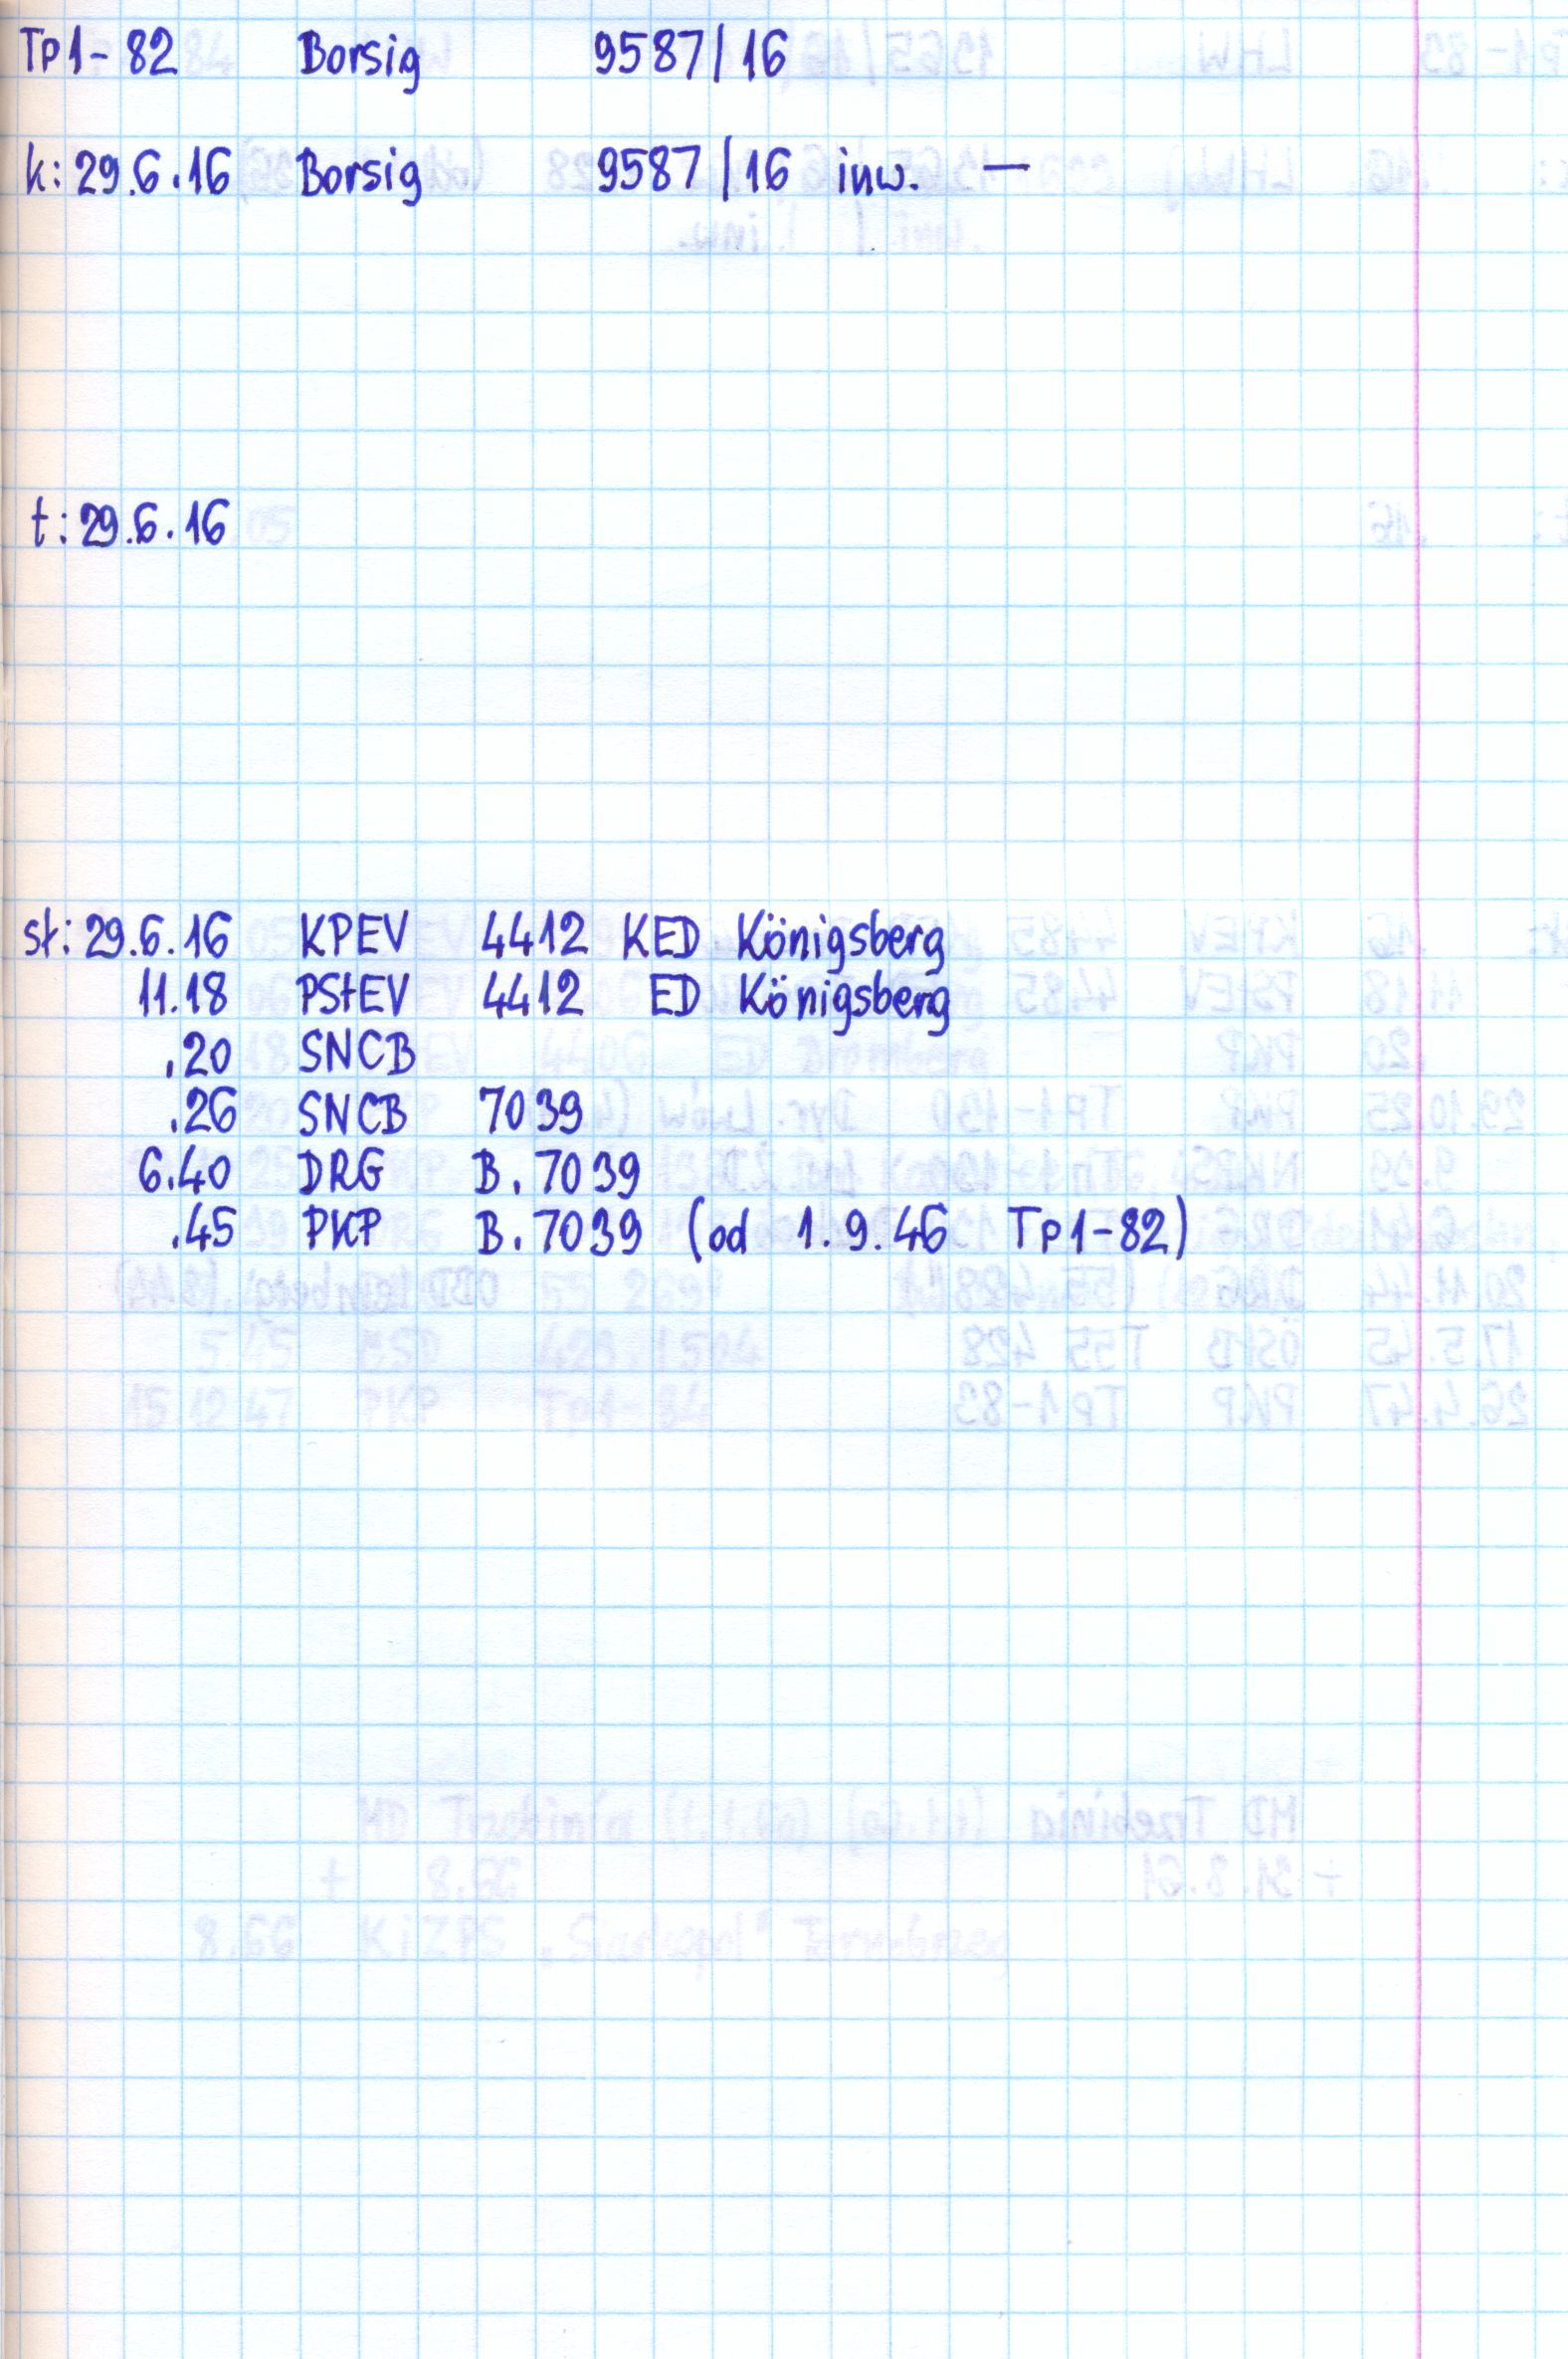 Tp1-82 Borsig 9587/16
k: 29.6.16 Borsig 9587/16 inw. —
t: 29.6.16
sł: 29.6.16 KPEV 4412 KED Königsberg
11.18 PStEV 4412 ED Königsberg
.20 SNCB
.26 SNCB 7039
6.40 DRG B.7039
.45 PKP B.7039 (od 1.9.46 Tp1-82)